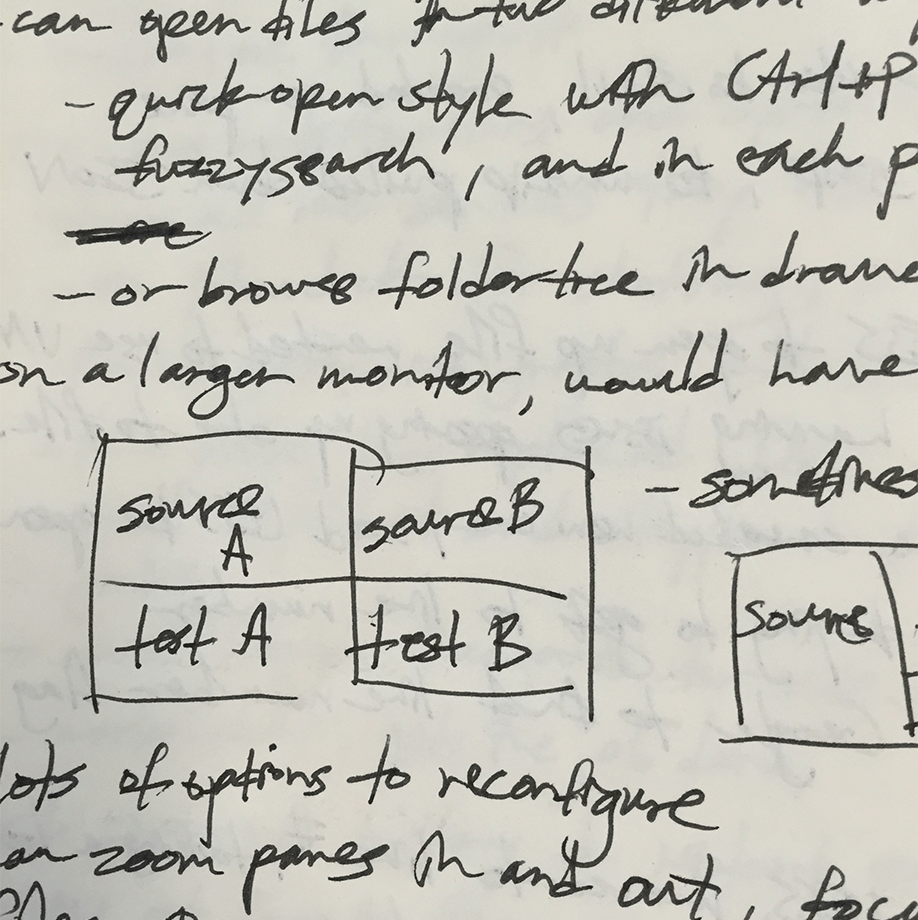 can open files in two different
- quick-open style with Ctrl+P
fuzzysearch, and in each p
- or browse folder tree in drawe
on a larger monitor, would have
- sometimes
source A
source B
test A
test B
source
lots of options to reconfigure
an zoom panes in and out, foc